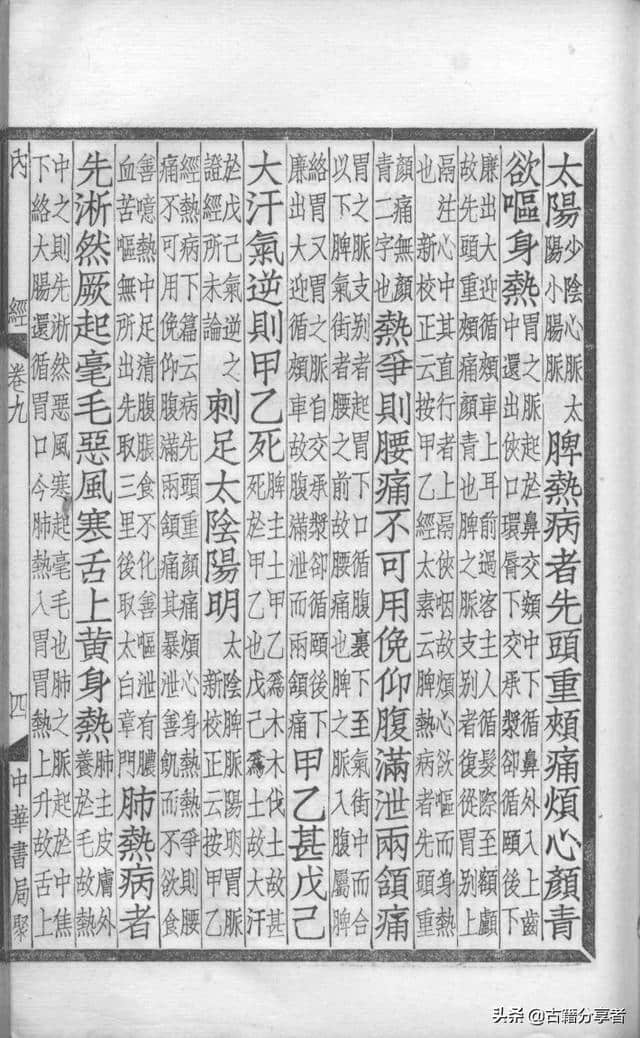 太陽少陰心脈太陽小腸脈脾熱病者先頭重頰痛煩心顏青
欲嘔身熱胃之脈起於鼻交頞中下循鼻外入上齒中還出俠口環脣下交承漿卻循頤後下
廉出大迎循頰車上耳前過客主人循髮際至額顱
故先頭重頰痛顏青也脾之脈支別者復從胃別上
鬲注心中其直行者上鬲俠咽故煩心欲嘔而身熱
也 新校正云按甲乙經太素云脾熱病者先頭重
顏痛無顏青二字也熱爭則腰痛不可用俛仰腹滿泄兩頷痛
胃之脈支別者起胃下口循腹裏下至氣街中而合
以下脾氣街者腰之前故腰痛也脾之脈入腹屬脾
絡胃又胃之脈自交承漿卻循頤後下廉出大迎循頰車故腹滿泄而兩頷痛甲乙甚戊己
大汗氣逆則甲乙死脾主土甲乙爲木木伐土故甚死於甲乙也戊己爲土故大汗
於戊己氣逆之證經所未論刺足太陰陽明太陰脾脈陽明胃脈 新校正云按甲乙
經熱病下篇云病先頭重顏痛煩心身熱熱爭則腰
痛不可用俛仰腹滿兩頷痛其暴泄善飢而不欲食
善噫熱中足清腹脹食不化善嘔泄有膿血苦嘔無所出先取三里後取太白章門肺熱病者
先淅然厥起毫毛惡風寒舌上黄身熱肺主皮膚外養於毛故熱
中之則先淅然惡風寒起毫毛也肺之脈起於中焦
下絡大腸還循胃口今肺熱入胃胃熱上升故舌上
內經 卷九 四 中華書局聚
头条 @古籍分享者